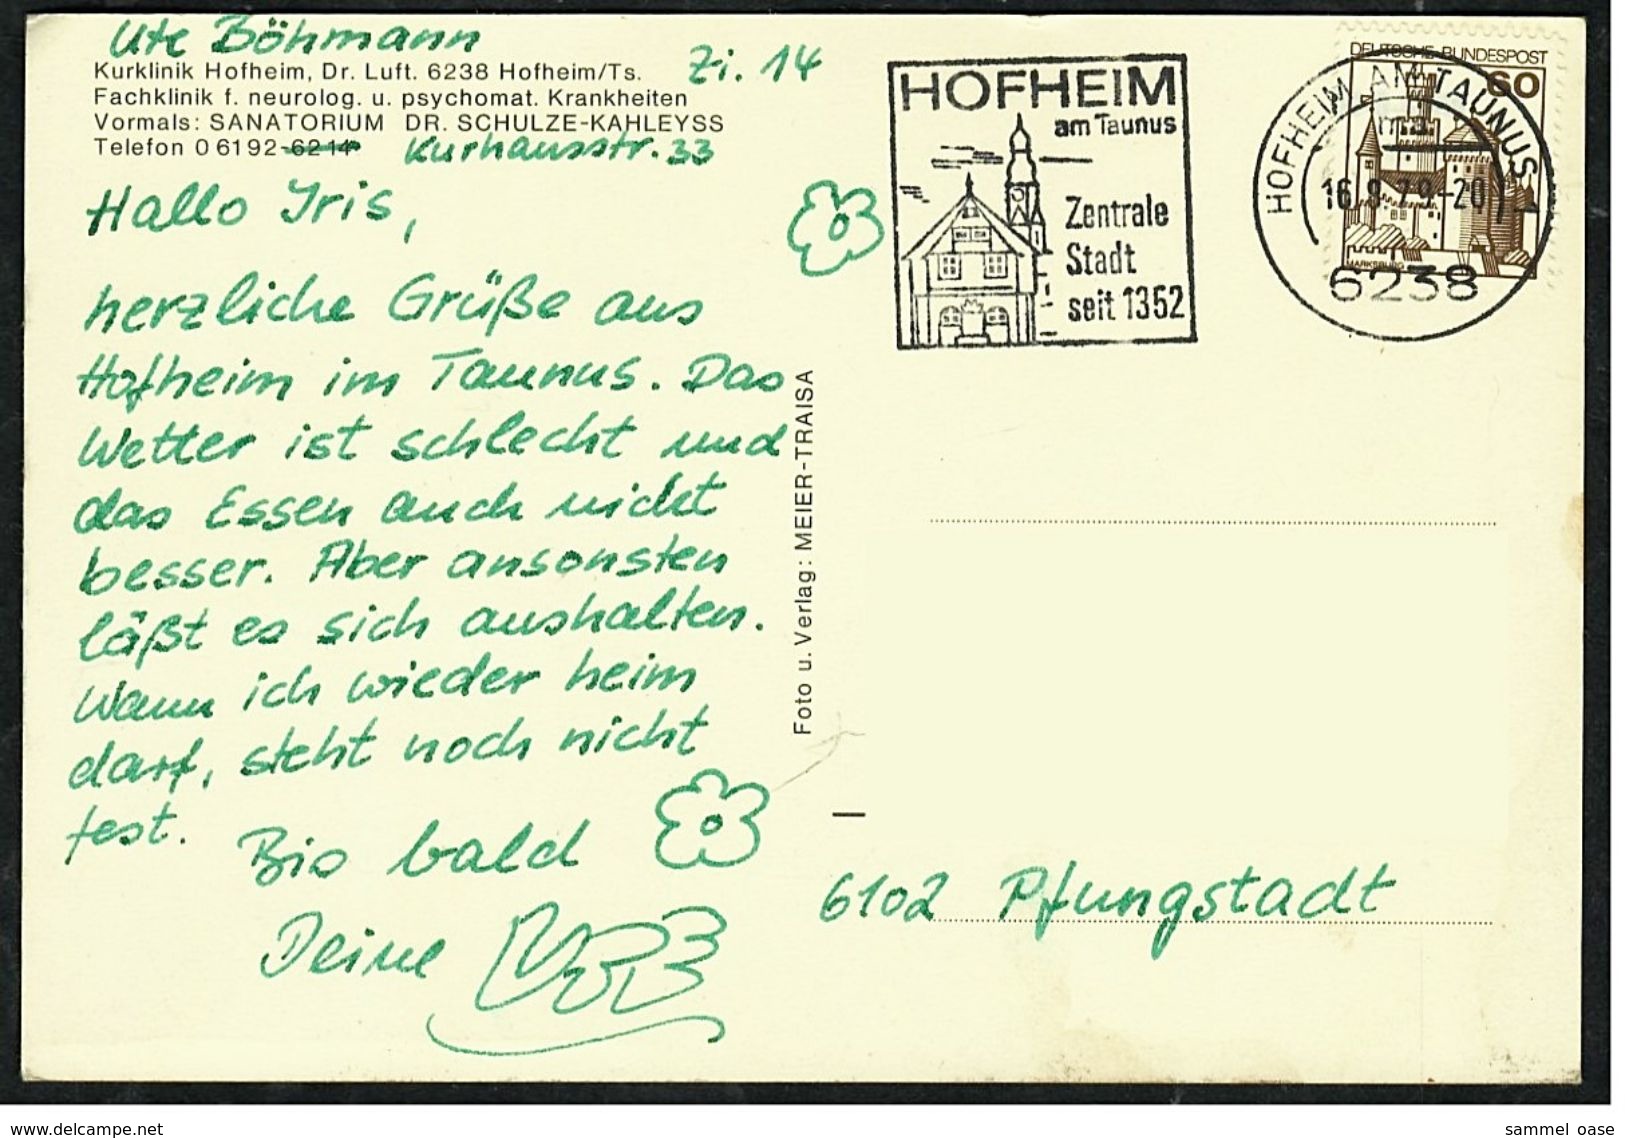 Ute Böhmann
Zi. 14
Kurklinik Hofheim, Dr. Luft. 6238 Hofheim/Ts.
Fachklinik f. neurolog. u. psychomat. Krankheiten
Vormals: SANATORIUM DR. SCHULZE-KAHLEYSS
Telefon 0 6192-6214
Kurhausstr. 33
Hallo Iris,
herzliche Grüße aus
Hofheim im Taunus. Das
Wetter ist schlecht und
das Essen auch nicht
besser. Aber ansonsten
läßt es sich aushalten.
Wann ich wieder heim
darf, steht noch nicht
fest.
Bis bald
Deine
Foto u. Verlag: MEIER-TRAISA
HOFHEIM
am Taunus
Zentrale
Stadt
seit 1352
DEUTSCHE BUNDESPOST
60
MARKSBURG
HOFHEIM AM TAUNUS 1
ma
16.-9.79-20
6238
6102 Pfungstadt
www.delcampe.net
sammel_oase